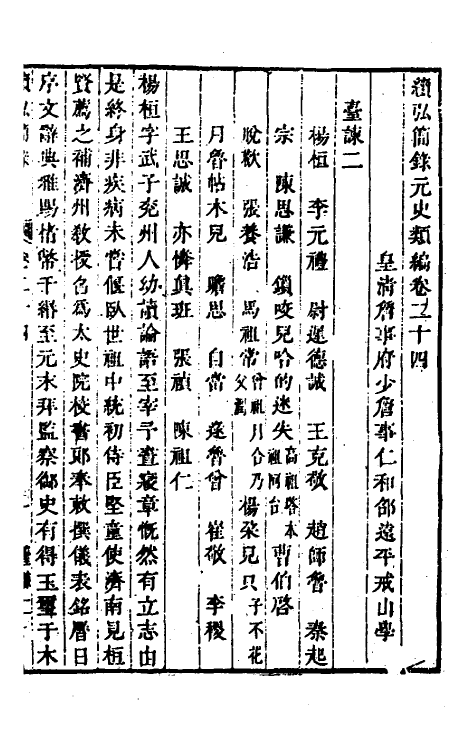 續弘簡錄元史類編卷二十四
皇淸詹事府少詹事仁和邵遠平戒山學
臺諫二
楊桓 李元禮 尉遲德誠 王克敬 趙師魯 秦起
宗 陳思謙 鎖咬兒哈的迷失高祖塔本祖阿台 曹伯啓
脫歡 張養浩 馬祖常曾祖月合乃父潤 楊朶兒只子不花
月魯帖木兒 贍思 自當 逯魯曾 崔敬 李稷
王思誠 亦憐眞班 張禎 陳祖仁
楊桓字武子兗州人幼讀論語至宰予晝寢章慨然有立志由
是終身非疾病未嘗偃臥世祖中統初侍臣堅童使濟南見桓
賢薦之補濟州敎授召爲太史院校書郎奉敕撰儀表銘曆日
序文辭典雅賜楮幣千緡至元末拜監察御史有得玉璽于木